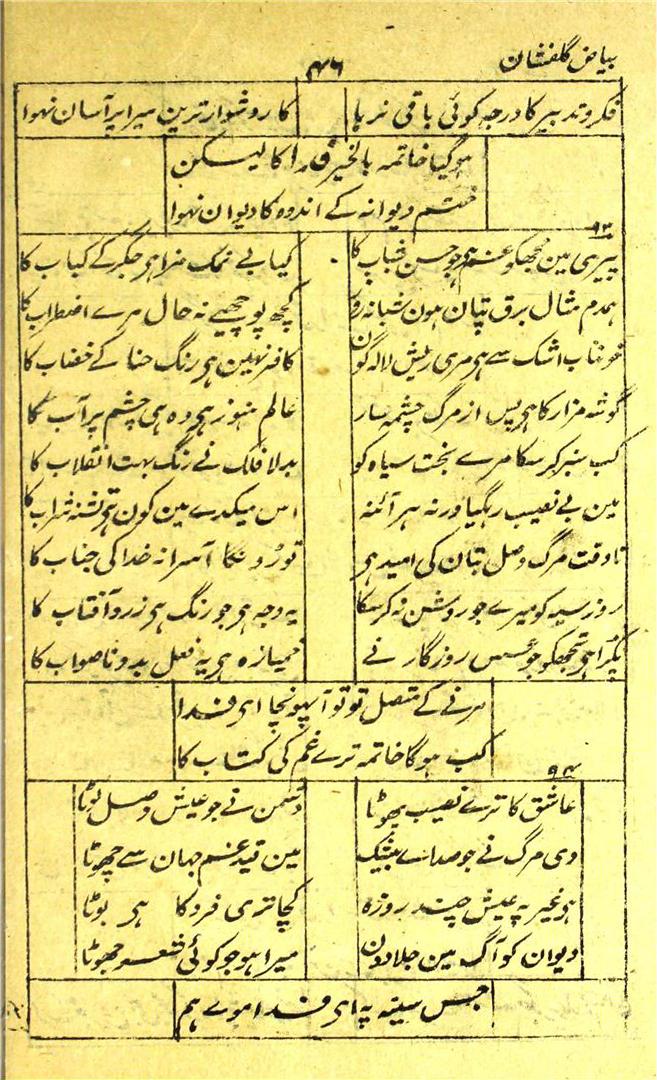 بیاض گلفشان
۴۶
فکر و تدبیر کا درجہ کوئی باقی نرہا کار دشوار ترین میرا پر آسان نہوا
ہو گیا خاتمہ بالخیر فدا کا لیکن
ختم دیوانہ کے اندوہ کا دیوان نہوا
۹۳
پیری مین مجھکو غم ہی جو حسن شباب کا کیا بے نمک مزا ہی جگر کے کباب کا
ہمدم مثال برق تپان ہون شبانہ روز کچھ پوچھیے نہ حال مرے اضطراب کا
خونناب اشک سے ہی مری ریش لالہ گون کافر نہین ہی رنگ حنا کے خضاب کا
گوشہ مزار کا ہی پس از مرگ چشمہ سار عالم ہنوز ہی وہ ہی چشم پر آب کا
کب سبز کر سکا مرے بخت سیاہ کو بدلا فلک نے رنگ بہت انقلاب کا
مین بے نصیب رہگیا ورنہ ہر آئنہ اس میکدے مین کون ہی تشنہ شراب کا
تا وقت مرگ وصل بتان کی امید ہی توڑونگا آسرا نہ خدا کی جناب کا
روز سیہ کو میرے جو روشن نہ کر سکا یہ وجہ ہی جو رنگ ہی زرد آفتاب کا
پکڑا ہی تجھکو جو عسس روزگار نے خمیازہ ہی یہ فعل بد و ناصواب کا
مرنے کے متصل تو تو آ پہونچا ای فدا
کب ہوگا خاتمہ ترے غم کی کتاب کا
۹۴
عاشق کا ترے نصیب پھوٹا دشمن نے جو عیش وصل لوٹا
دی مرگ نے جو صدا بیشک مین قید غم جہان سے چھوٹا
ہی غیر پہ عیش چند روزہ کچا تری فرد کا ہی بوٹا
دیوان کو آگ مین جلا دون میرا ہو جو کوئی شعر جھوٹا
جس سینہ پہ ای فدا موے ہم